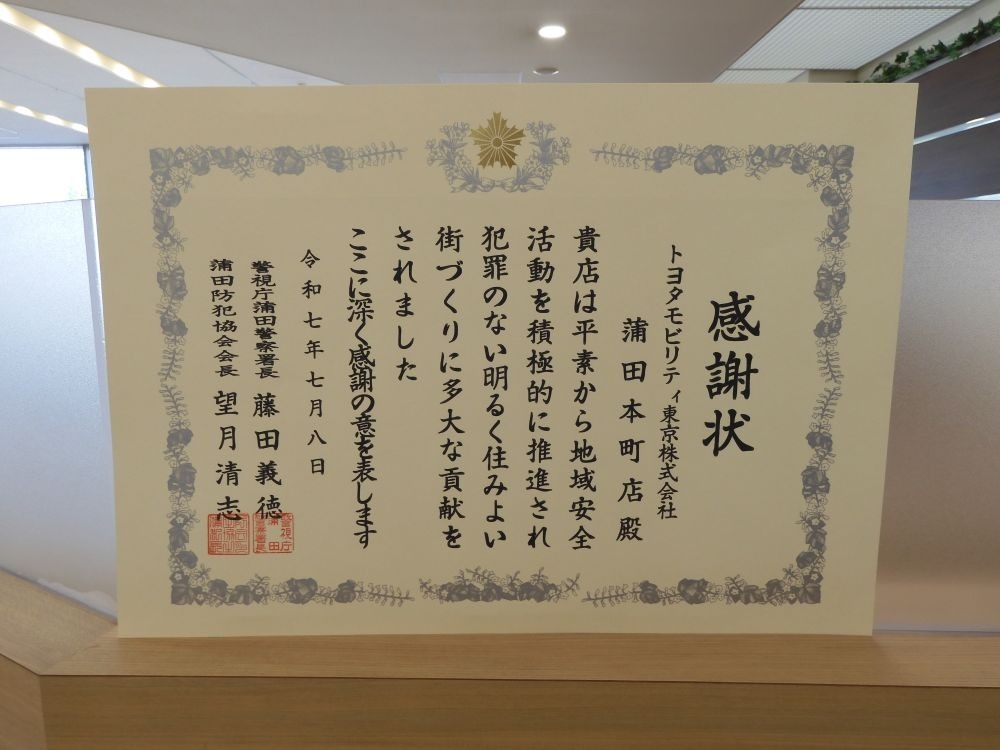 感謝状
トヨタモビリティ東京株式会社
蒲田本町店殿
貴店は平素から地域安全
活動を積極的に推進され
犯罪のない明るく住みよい
街づくりに多大な貢献を
されました
ここに深く感謝の意を表します
令和七年七月八日
警視庁蒲田警察署長 藤田義徳
蒲田防犯協会会長 望月清志